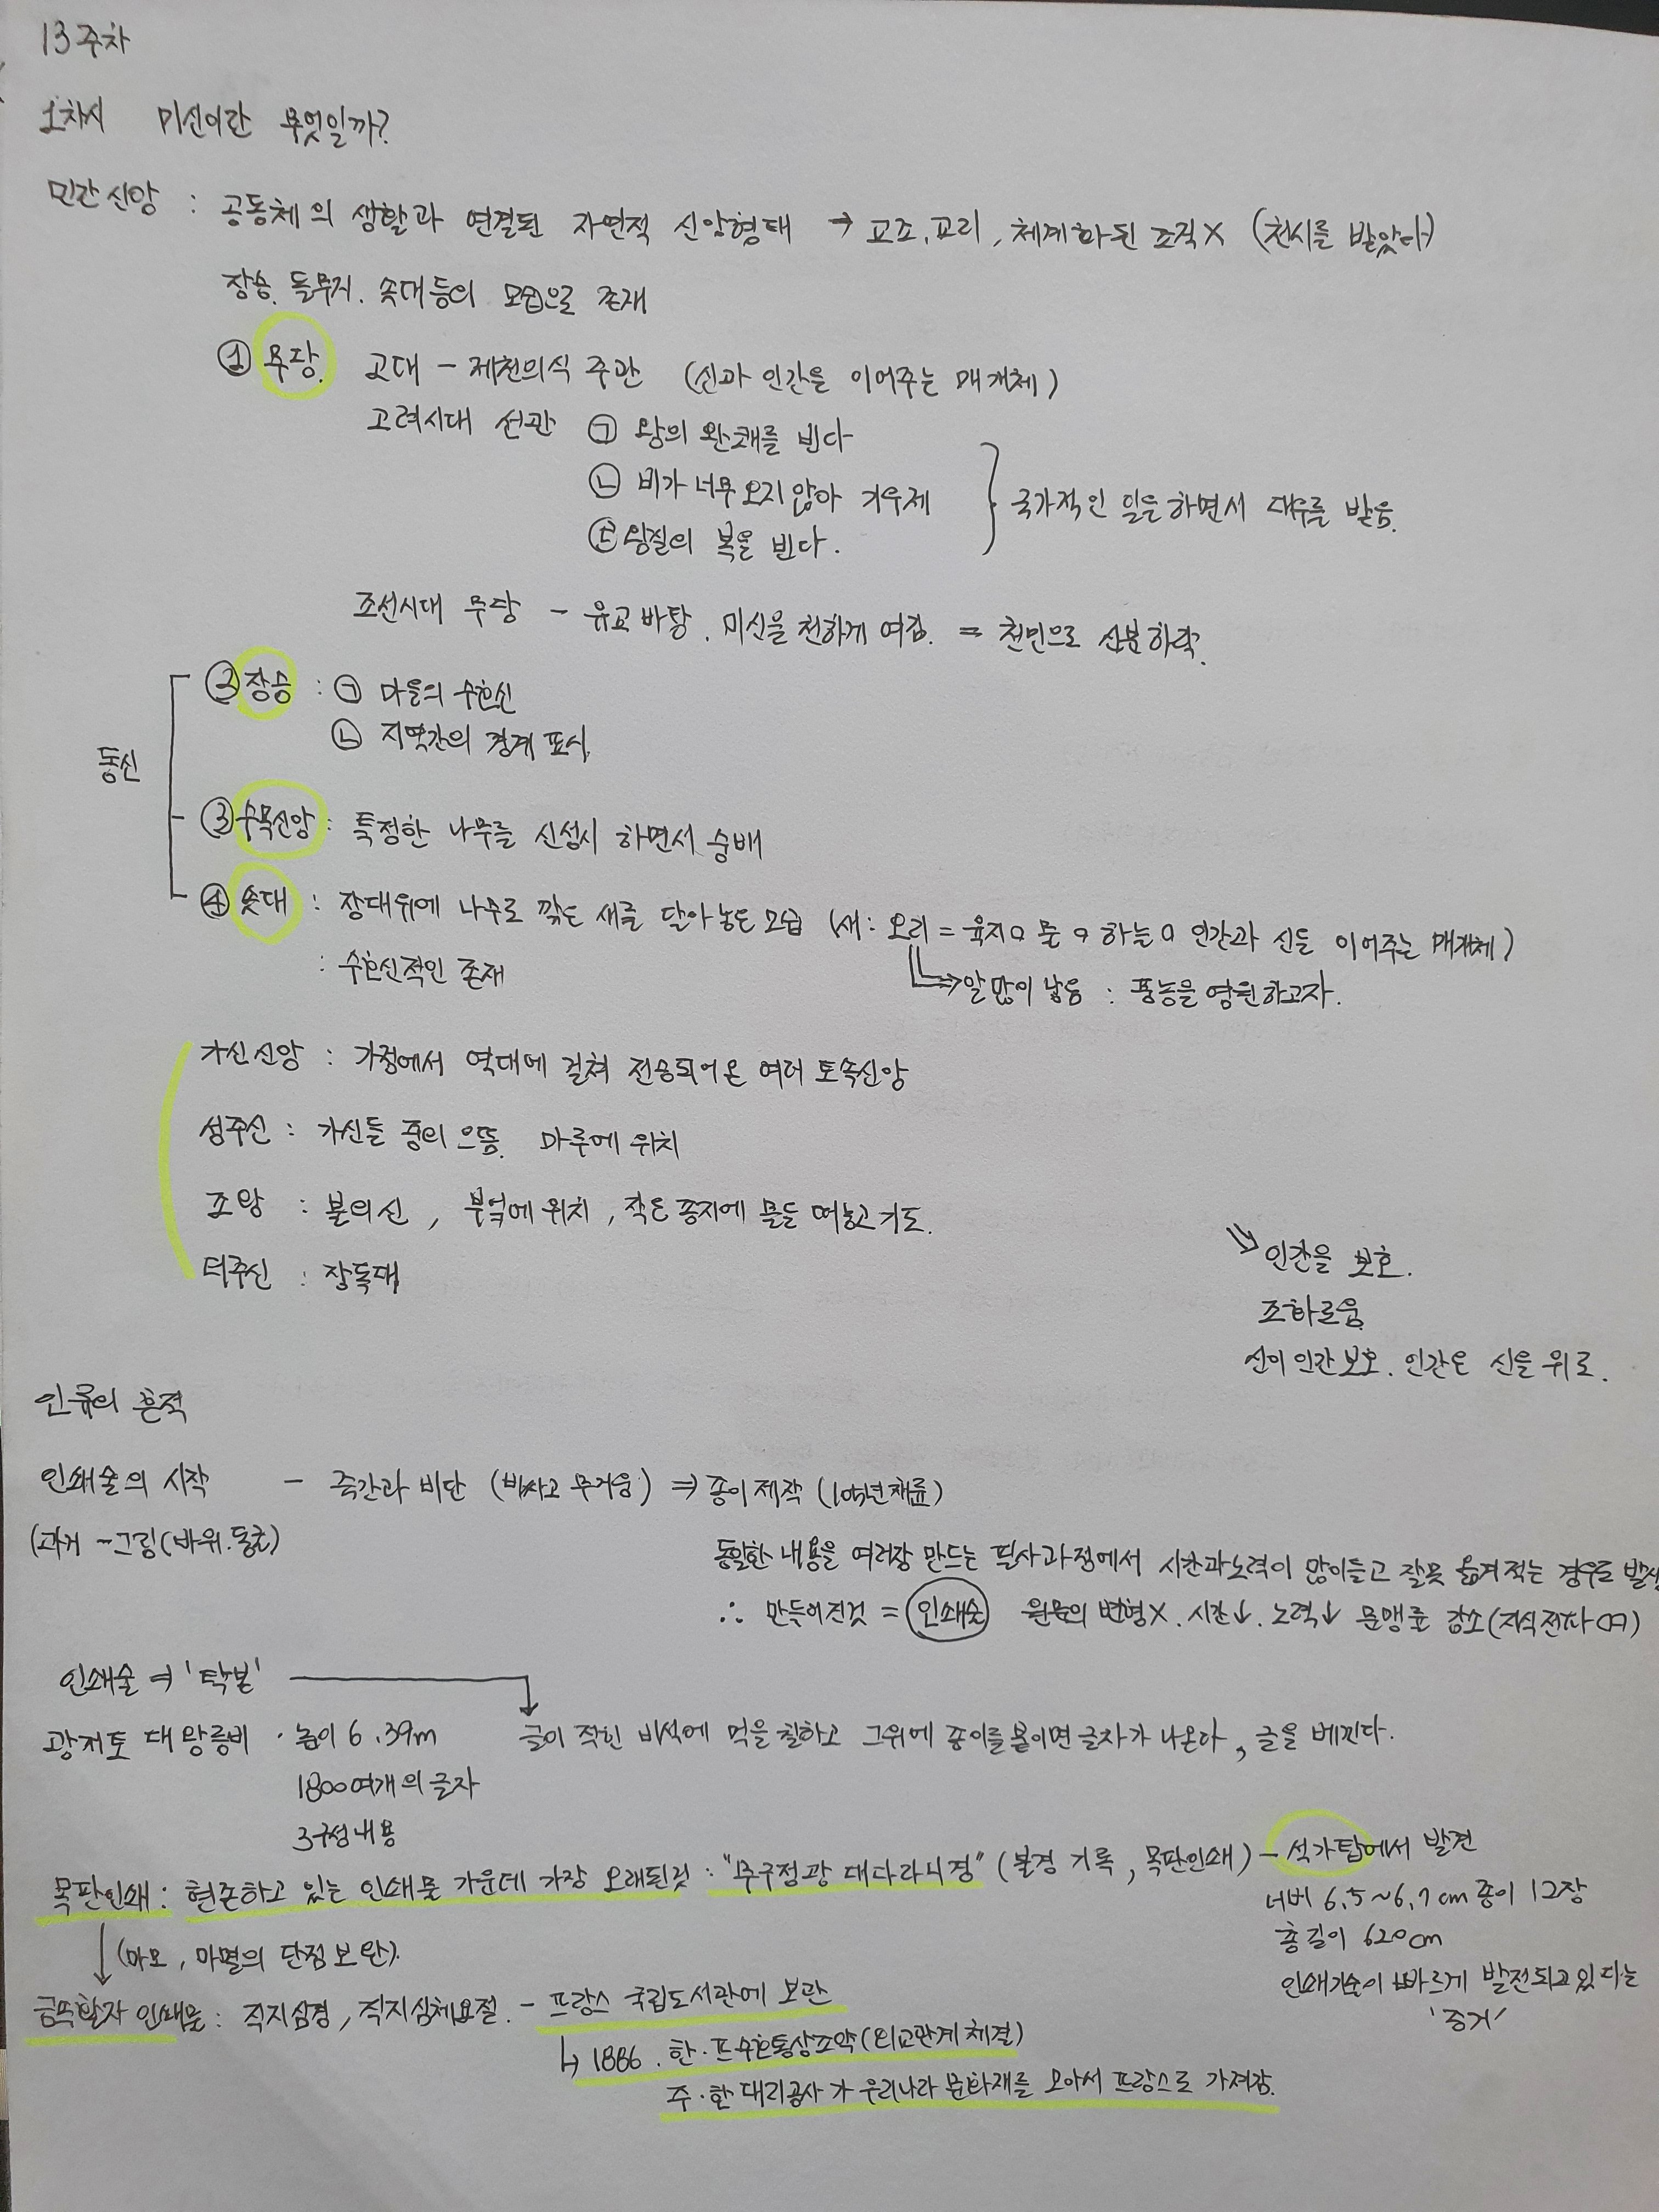 13주차
1차시 미신이란 무엇일까?
민간신앙 : 공동체의 생활과 연결된 자연적 신앙형태 → 교조, 교리, 체계화된 조직X (천시를 받았다)
장승, 돌무지, 솟대등의 모습으로 존재
① 무당. 고대 - 제천의식 주관 (신과 인간을 이어주는 매개체)
고려시대 선관 ㉠ 왕의 완쾌를 빈다
㉡ 비가 너무 오지 않아 기우제
㉢ 왕실의 복을 빈다.
} 국가적인 일을 하면서 대우를 받음.
조선시대 무당 - 유교바탕. 미신을 천하게 여김. = 천민으로 신분하락.
동신
③ 장승 : ㉠ 마을의 수호신
㉡ 지역간의 경계 표시.
③ 수목신앙 : 특정한 나무를 신성시 하면서 숭배
④ 솟대 : 장대위에 나무로 깎은 새를 달아놓은 모습 (새: 오리 = 육지o 물o 하늘o 인간과 신을 이어주는 매개체)
: 수호신적인 존재
⇒ 알많이 낳음 : 풍농을 영원하고자.
가신신앙 : 가정에서 역대에 걸쳐 전승되어온 여러 토속신앙
성주신 : 가신들 중의 으뜸. 마루에 위치
조왕 : 불의신, 부엌에 위치, 작은 종지에 물을 떠놓고 기도.
터주신 : 장독대
⇒ 인간을 보호.
조화로움.
신이 인간보호. 인간은 신을 위로.
인류의 흔적
인쇄술의 시작 - 죽간과 비단 (비싸고 무거움) ⇒ 종이제작 (105년채륜)
(과거 - 그림(바위.동굴)
동일한 내용을 여러장 만드는 필사과정에서 시간과노력이 많이들고 잘못 옮겨적는 경우도 발생
∴ 만들어진것 = 인쇄술 원문의 변형X. 시간↓. 노력↓ 문맹률 감소(지식전파 때)
인쇄술 ⇒ '탁본'
광개토 대왕릉비 · 높이 6.39m
글이 적힌 비석에 먹을 칠하고 그위에 종이를 붙이면 글자가 나온다, 글을 베낀다.
1800여개의 글자
3구성내용
목판인쇄 : 현존하고 있는 인쇄물 가운데 가장 오래된것 : "무구정광 대다라니경" (불경 기록, 목판인쇄) - 석가탑에서 발견
너비 6.5~6.7cm 종이 12장
총길이 620cm
인쇄기술이 빠르게 발전되고있다는
'증거'
↓ (마모, 마멸의 단점 보완).
금속활자 인쇄물 : 직지심경, 직지심체요절. - 프랑스 국립도서관에 보관
↳ 1886. 한·프수호통상조약(외교관계체결)
주·한 대리공사가 우리나라 문화재를 모아서 프랑스로 가져감.